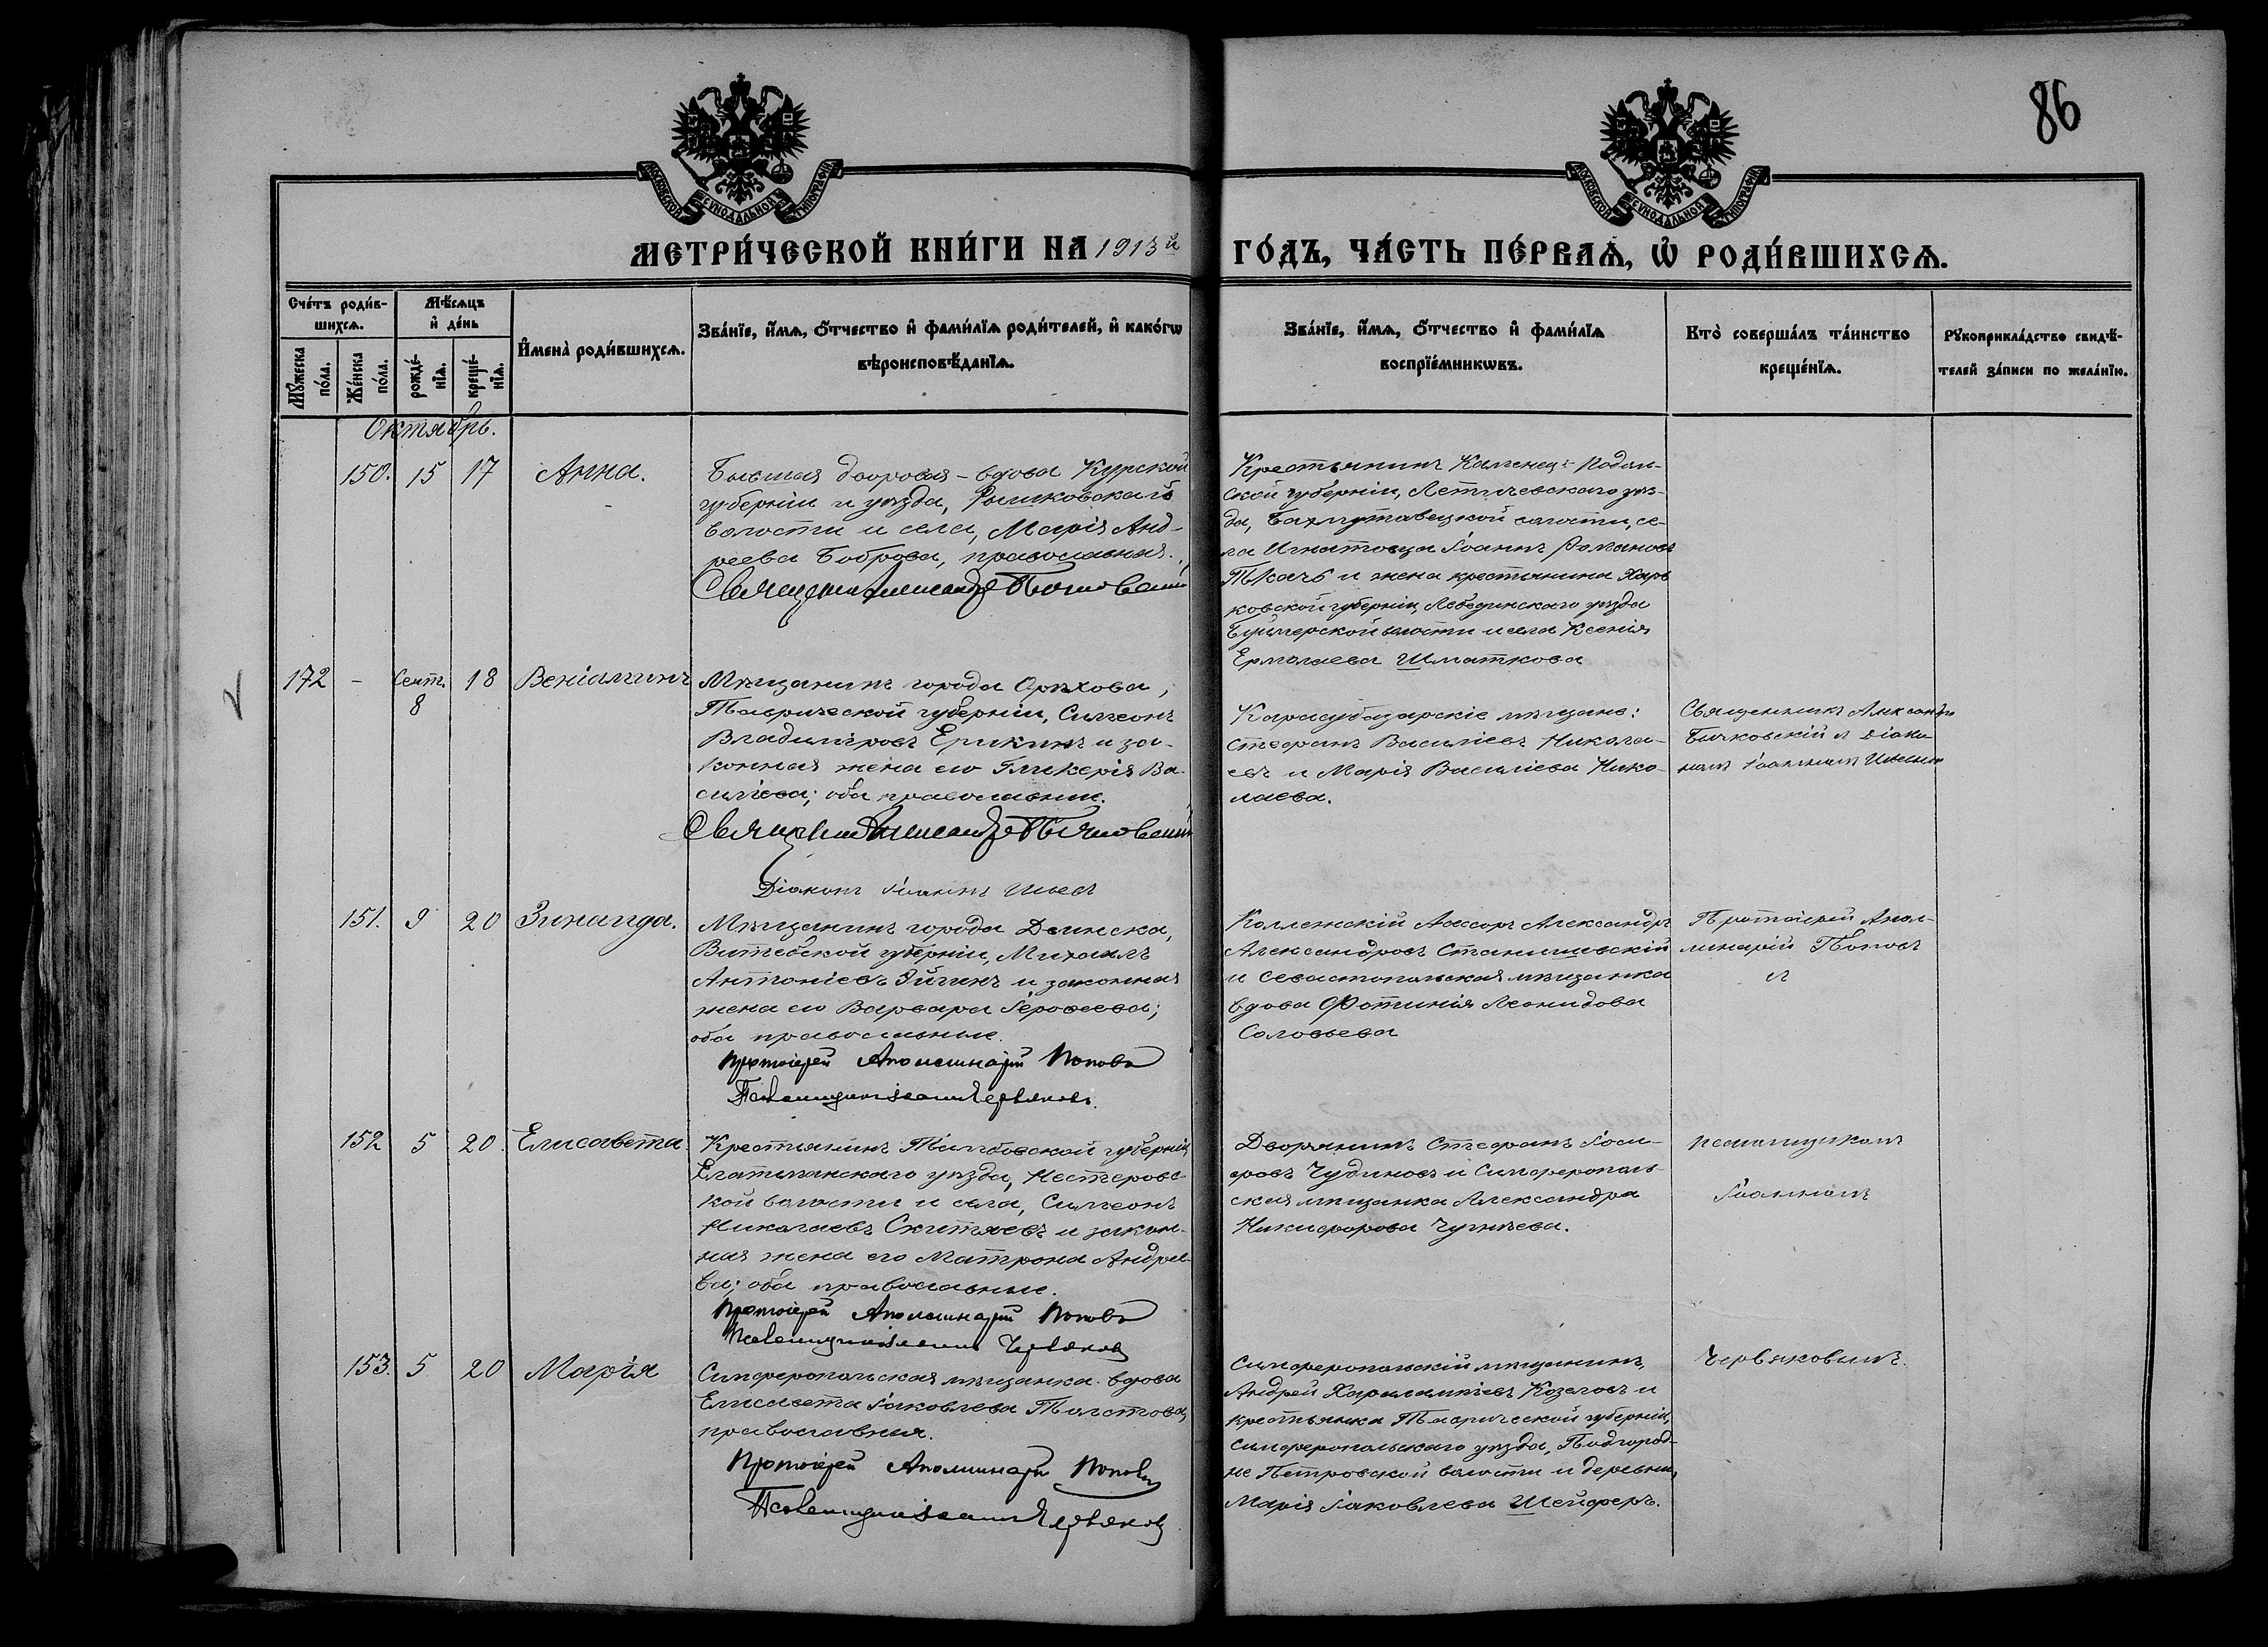 86
МОСКОВСКОЙ СѴНОДАЛЬНОЙ ТИПОГРАФІИ
МОСКОВСКОЙ СѴНОДАЛЬНОЙ ТИПОГРАФІИ
МЕТРИ́ЧЕСКОЙ КНИ́ГИ НА 1913й ГО́ДЪ, ЧА́СТЬ ПЕ́РВАѦ, Ѡ҆ РОДИ́ВШИХСѦ.
Сче́тъ роди́в-
шихсѧ.
Мꙋ́жеска по́ла.
Же́нска по́ла.
Мѣ́сѧцъ
и҆ де́нь
рожде́-
нїѧ.
креще́-
нїѧ.
И҆мена̀ роди́вшихсѧ.
Зва́нїе, и҆́мѧ, ѻ҆́тчество и҆ фами́лїѧ роди́телей, и҆ како́гѡ
вѣроисповѣ́данїѧ.
Зва́нїе, и҆́мѧ, ѻ҆́тчество и҆ фами́лїѧ
воспрїе́мникѡвъ.
Кто̀ соверша́лъ та́инство
креще́нїѧ.
Рꙋкоприкла́дство свидѣ́-
телей за́писи по жела́нїю.
Октябрь.
150. 15 17 Анна.
Бывшая дворовая - вдова Курской
губерніи и уѣзда, Рышковской
волости и села, Марія Анд-
реева Боброва, православная.
Священникъ Александръ
Крестьянинъ Каменец-Подоль-
ской губерніи, Летичевскаго уѣз-
да, волости, се-
ла Іоаннъ Романовъ
Ткачъ и жена крестьянина Харь
ковской губерніи, Лебединскаго уѣзда
волости и села Ксенія
Ермолаева Шматкова
172 - Сент. 8 18 Веніаминъ
Мѣщанинъ города Орѣхова,
Таврической губерніи, Симеонъ
Владиміровъ и за-
конная жена его Гликерія Ва-
силіева; оба православные.
Священникъ Александръ
Діаконъ Іоаннъ
Карасубазарскіе мѣщане:
Стефанъ Василіевъ Никола-
евъ и Марія Василіева Нико-
лаева.
Священникъ Александръ
съ Діако-
номъ Іоанномъ
151. 9 20 Зинаида.
Мѣщанинъ города Двинска,
Витебской губерніи, Михаилъ
Антоніевъ и законная
жена его Варвара Іероѳеева;
оба православные.
Протоіерей Аполлинарій Поповъ
Псаломщикъ Іоаннъ Червяковъ.
Коллежскій Ассесоръ Александръ
Александровъ Станишевскій
и Севастопольская мѣщанка
вдова Фотинія Леонидова
Соловьева
Протоіерей Апол-
линарій Поповъ
съ
152 5 20. Елисавета.
Крестьянинъ Тамбовской губерніи
Елатомскаго уѣзда, Нестеровс-
кой волости и села, Симеонъ
Николаевъ и закон-
ная жена его Матрона Андрее-
ва; оба православные.
Протоіерей Аполлинарій Поповъ
Псаломщикъ Іоаннъ Червяковъ
Дворянинъ Стефанъ Іоси-
фовъ Чудиновъ и Симферополь-
ская мѣщанка Александра
Никифорова
псаломщикомъ
Іоанномъ
153. 5 20 Марія
Симферопольская мѣщанка вдова
Елисавета Іаковлева Толстова,
православная.
Протоіерей Аполлинарій Поповъ
Псаломщикъ Іоаннъ Червяковъ
Симферопольскій мѣщанинъ
Андрей Харалампіевъ Козловъ и
крестьянка Таврической губерніи,
Симферопольскаго уѣзда, Подгород-
не Петровской волости и деревни,
Марія Іаковлева Шейферъ.
Червяковымъ.